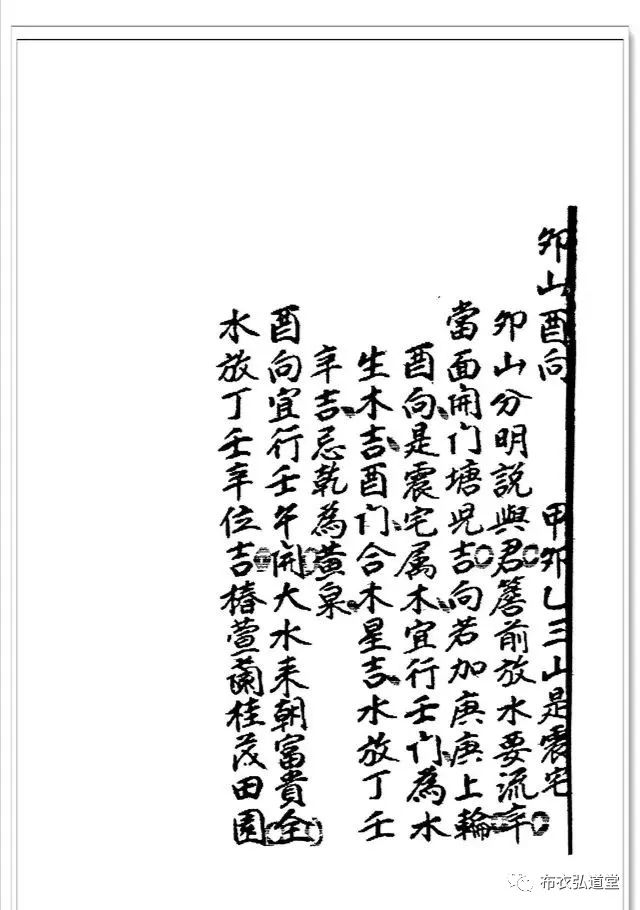 卯山酉向　甲卯乙三山是震宅
卯山分明説與君簷前放水要流辛
當面開门塘児吉向若加庚庚上輪
酉向是震宅属木宜行壬门為水
生木吉酉门合木星吉水放丁壬
辛吉忌乾為黄泉
酉向宜行壬午開大水来朝富貴全
水放丁壬辛位吉椿萱蘭桂茂田園
布衣弘道堂